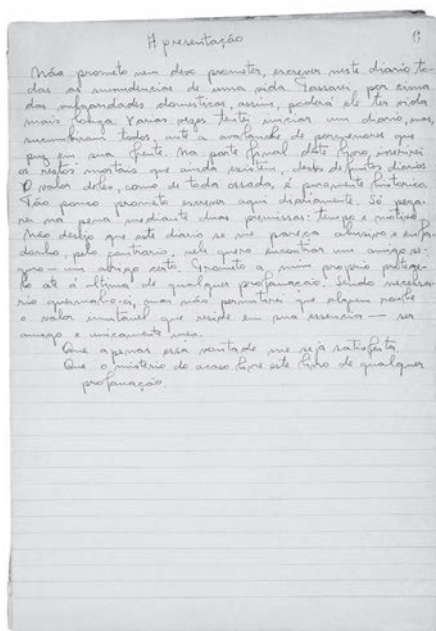 Apresentação
6
Não prometo nem devo prometer, escrever neste diario to-
das as minudencias de uma vida. Passarei por cima
das vulgaridades domesticas, assim, poderá ele ter vida
mais longa. Varias vezes tentei iniciar um diario, mas,
sucumbiram todos, ante a avalanche de pormenores que
puz em sua frente. Na parte final deste livro, inserirei
os restos mortais que ainda existem, destes defuntos diarios
O valor deles, como de toda ossada, é puramente historico.
Tão pouco prometo escrever aqui diariamente. Só pega-
rei na pena mediante duas premissas: tempo e motivo.
Não desejo que este diario se me pareça abusivo e enfa-
donho, pelo contrario, nele quero encontrar um amigo se-
guro — um abrigo certo. Prometo a mim proprio protege-
lo até á ultima de qualquer profanação. Sendo necessa-
rio queimal-o-ei, mas não permitirei que alguem roube
o valor imutavel que reside em sua essencia — ser
amigo e unicamente meu.
Que apenas essa vontade me seja satisfeita.
Que o misterio do acaso livre este livro de qualquer
profanação.